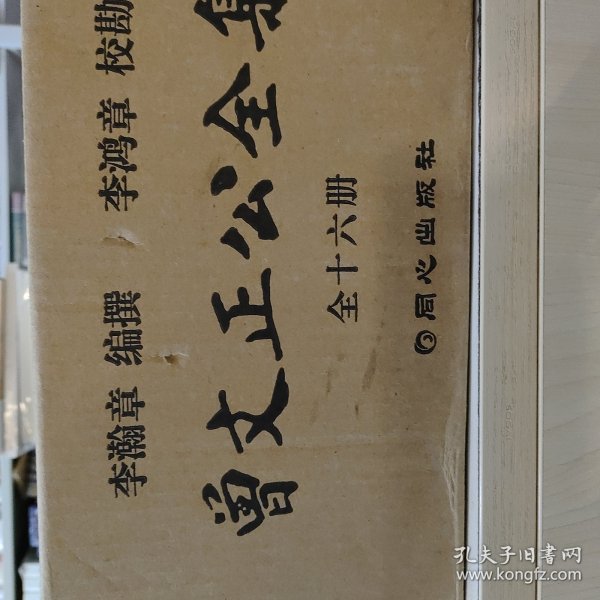 李瀚章 编撰 李鸿章 校勘
曾文正公全集
全十六册
同心出版社
孔夫子旧书网
www.kongfz.com